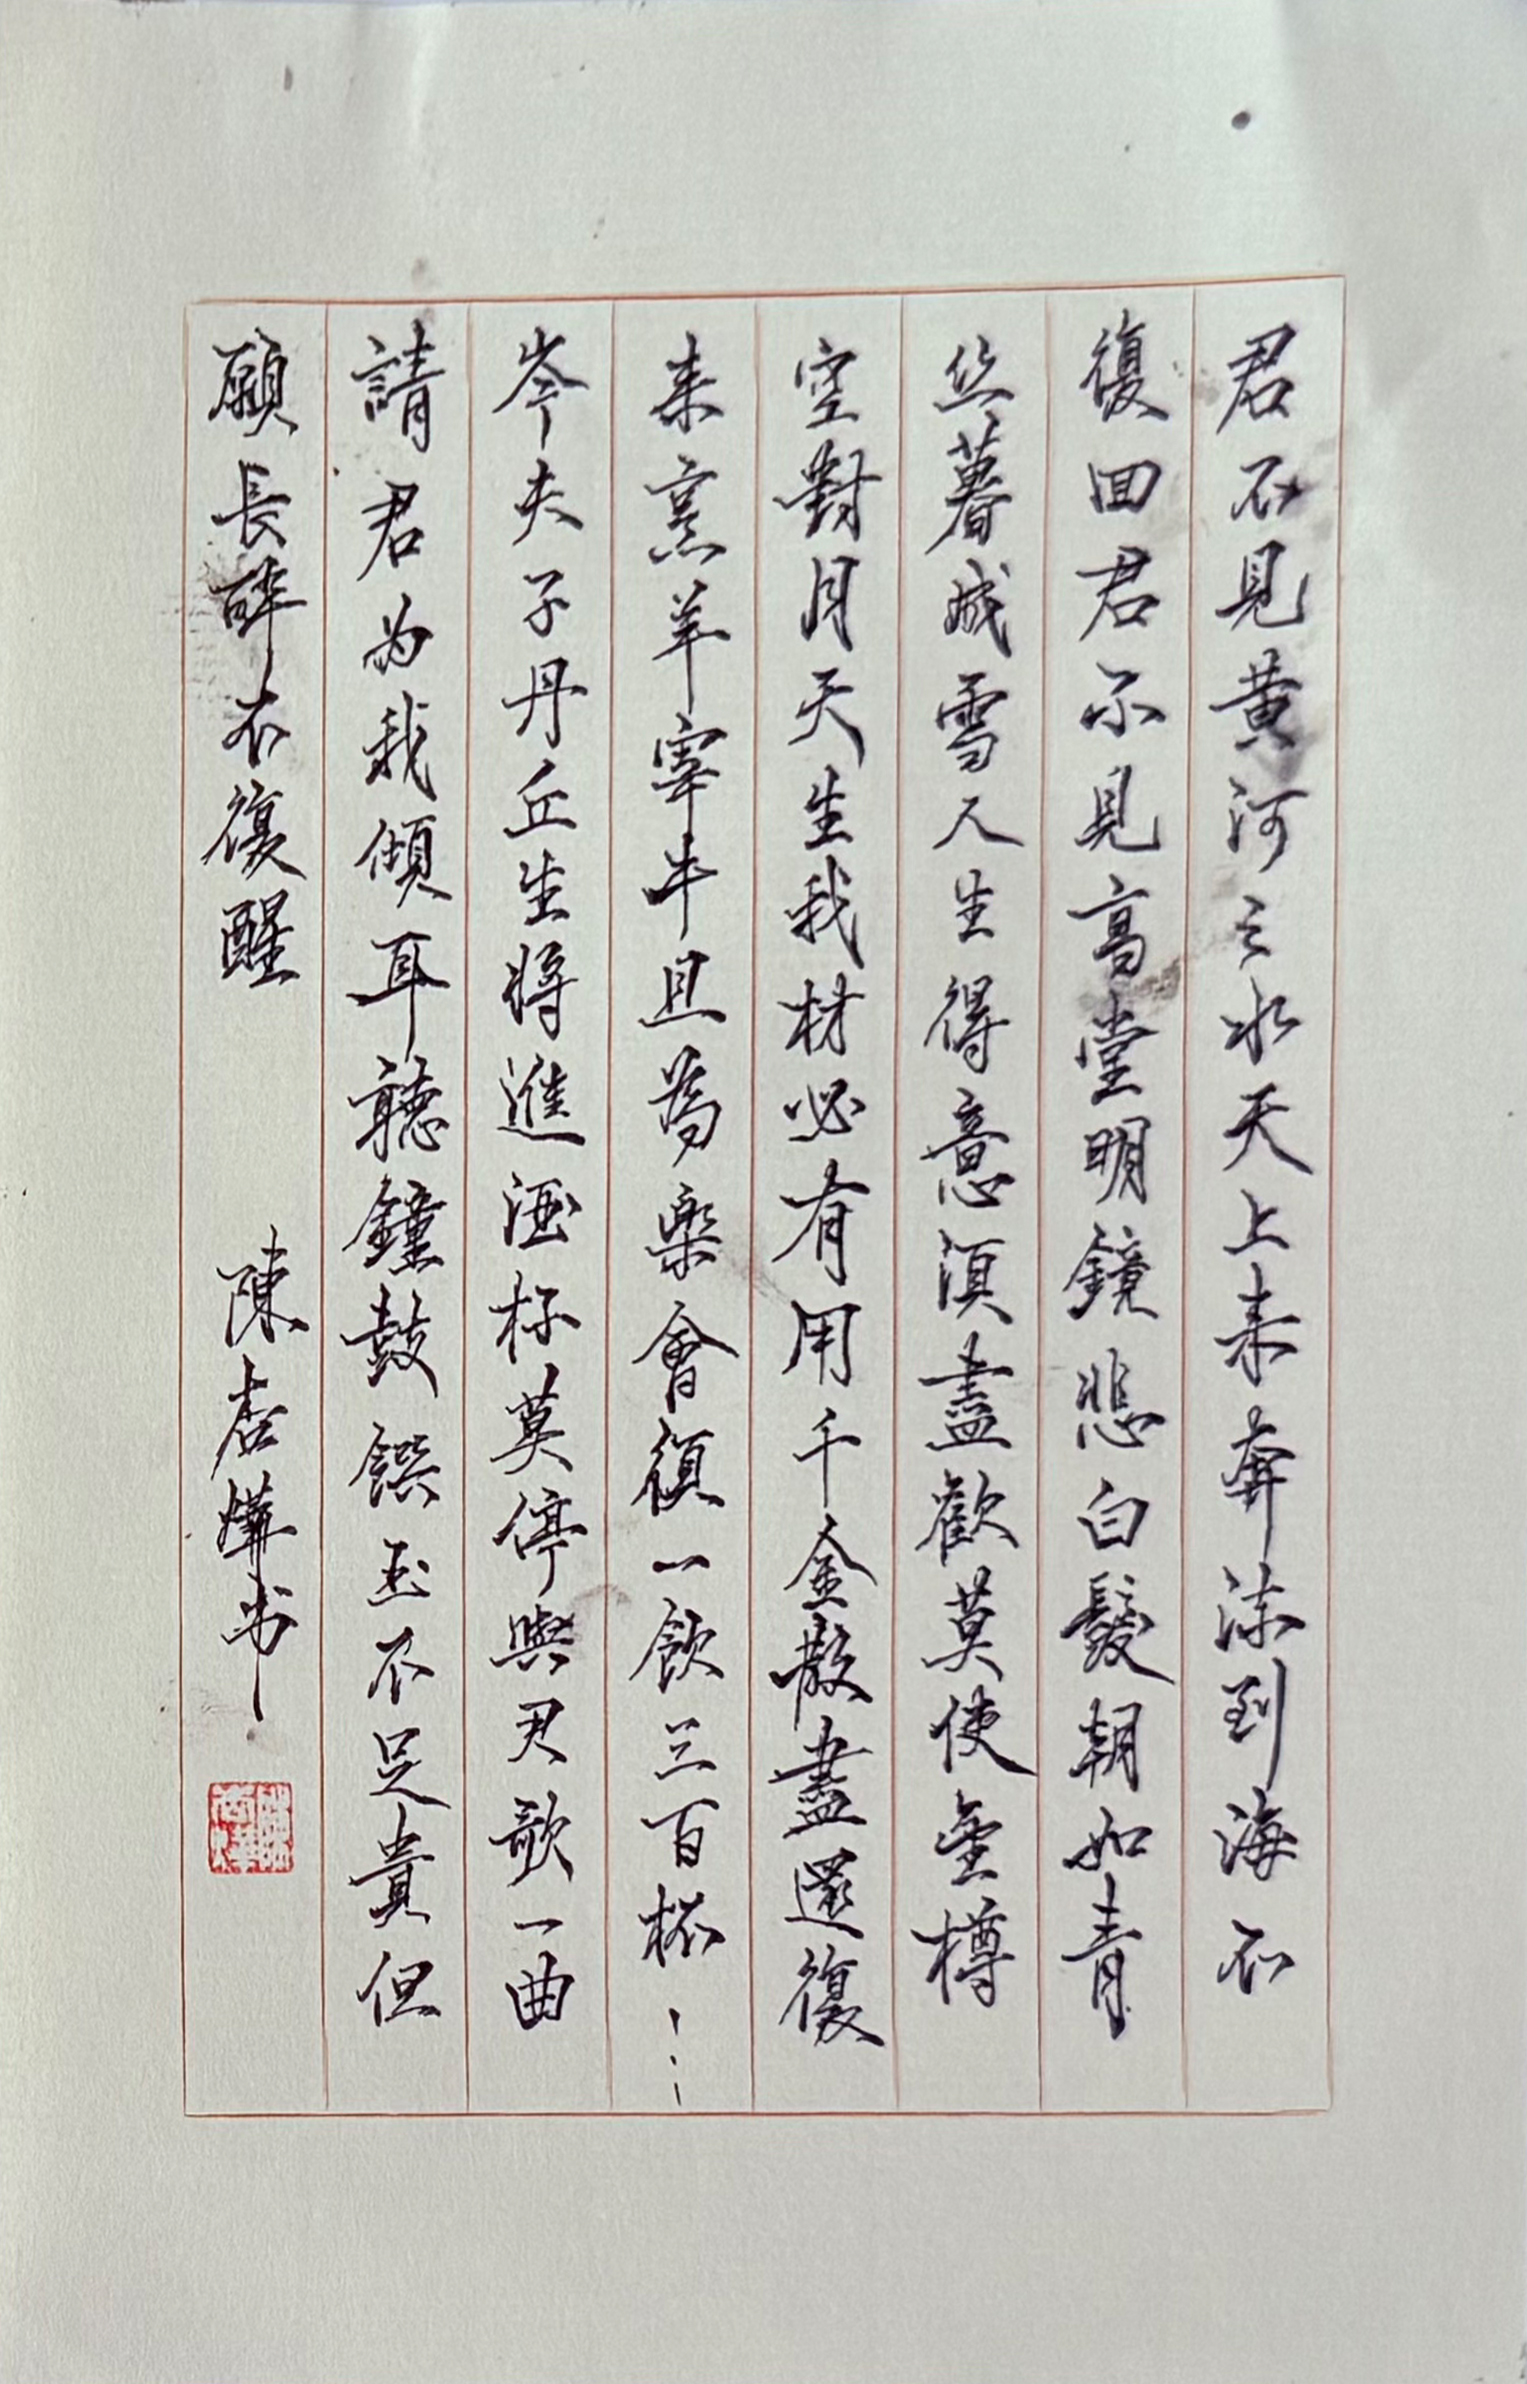 君不見黄河之水天上来奔流到海不
復回君不見高堂明鏡悲白髮朝如青
丝暮成雪人生得意須盡歡莫使金樽
空對月天生我材必有用千金散盡還復
来烹羊宰牛且為樂會須一飲三百杯…
岑夫子丹丘生將進酒杯莫停與君歌一曲
請君为我傾耳聽鐘鼓饌玉不足貴但
願長醉不復醒 陳燁书